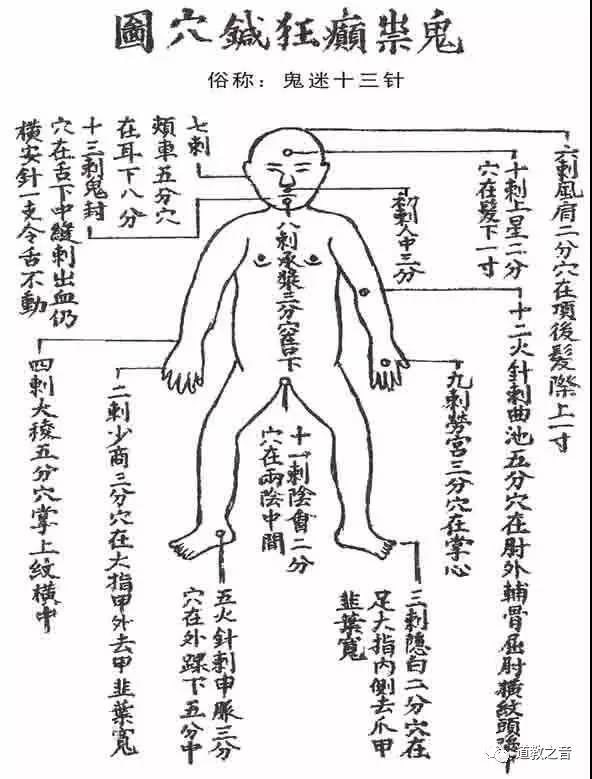 鬼祟癲狂鍼穴圖
俗称：鬼迷十三针
六刺風府二分穴在項後髮際上一寸
十刺上星二分
穴在髮下一寸
十二火針刺曲池五分穴在肘外輔骨屈肘橫紋頭陷中
初刺人中三分
九刺勞宮三分穴在掌心
八刺承漿三分穴唇下
七刺
頰車五分穴
在耳下八分
十三刺鬼封
穴在舌下中縫刺出血仍
橫安針一支令舌不動
三刺隱白二分穴在
足大指內側去爪甲
韭葉寬
十一刺陰會二分
穴在兩陰中間
五火針刺申脈三分
穴在外踝下五分中
二刺少商三分穴在大指甲外去甲韭葉寬
四刺大稜五分穴掌上紋橫中
道教之音